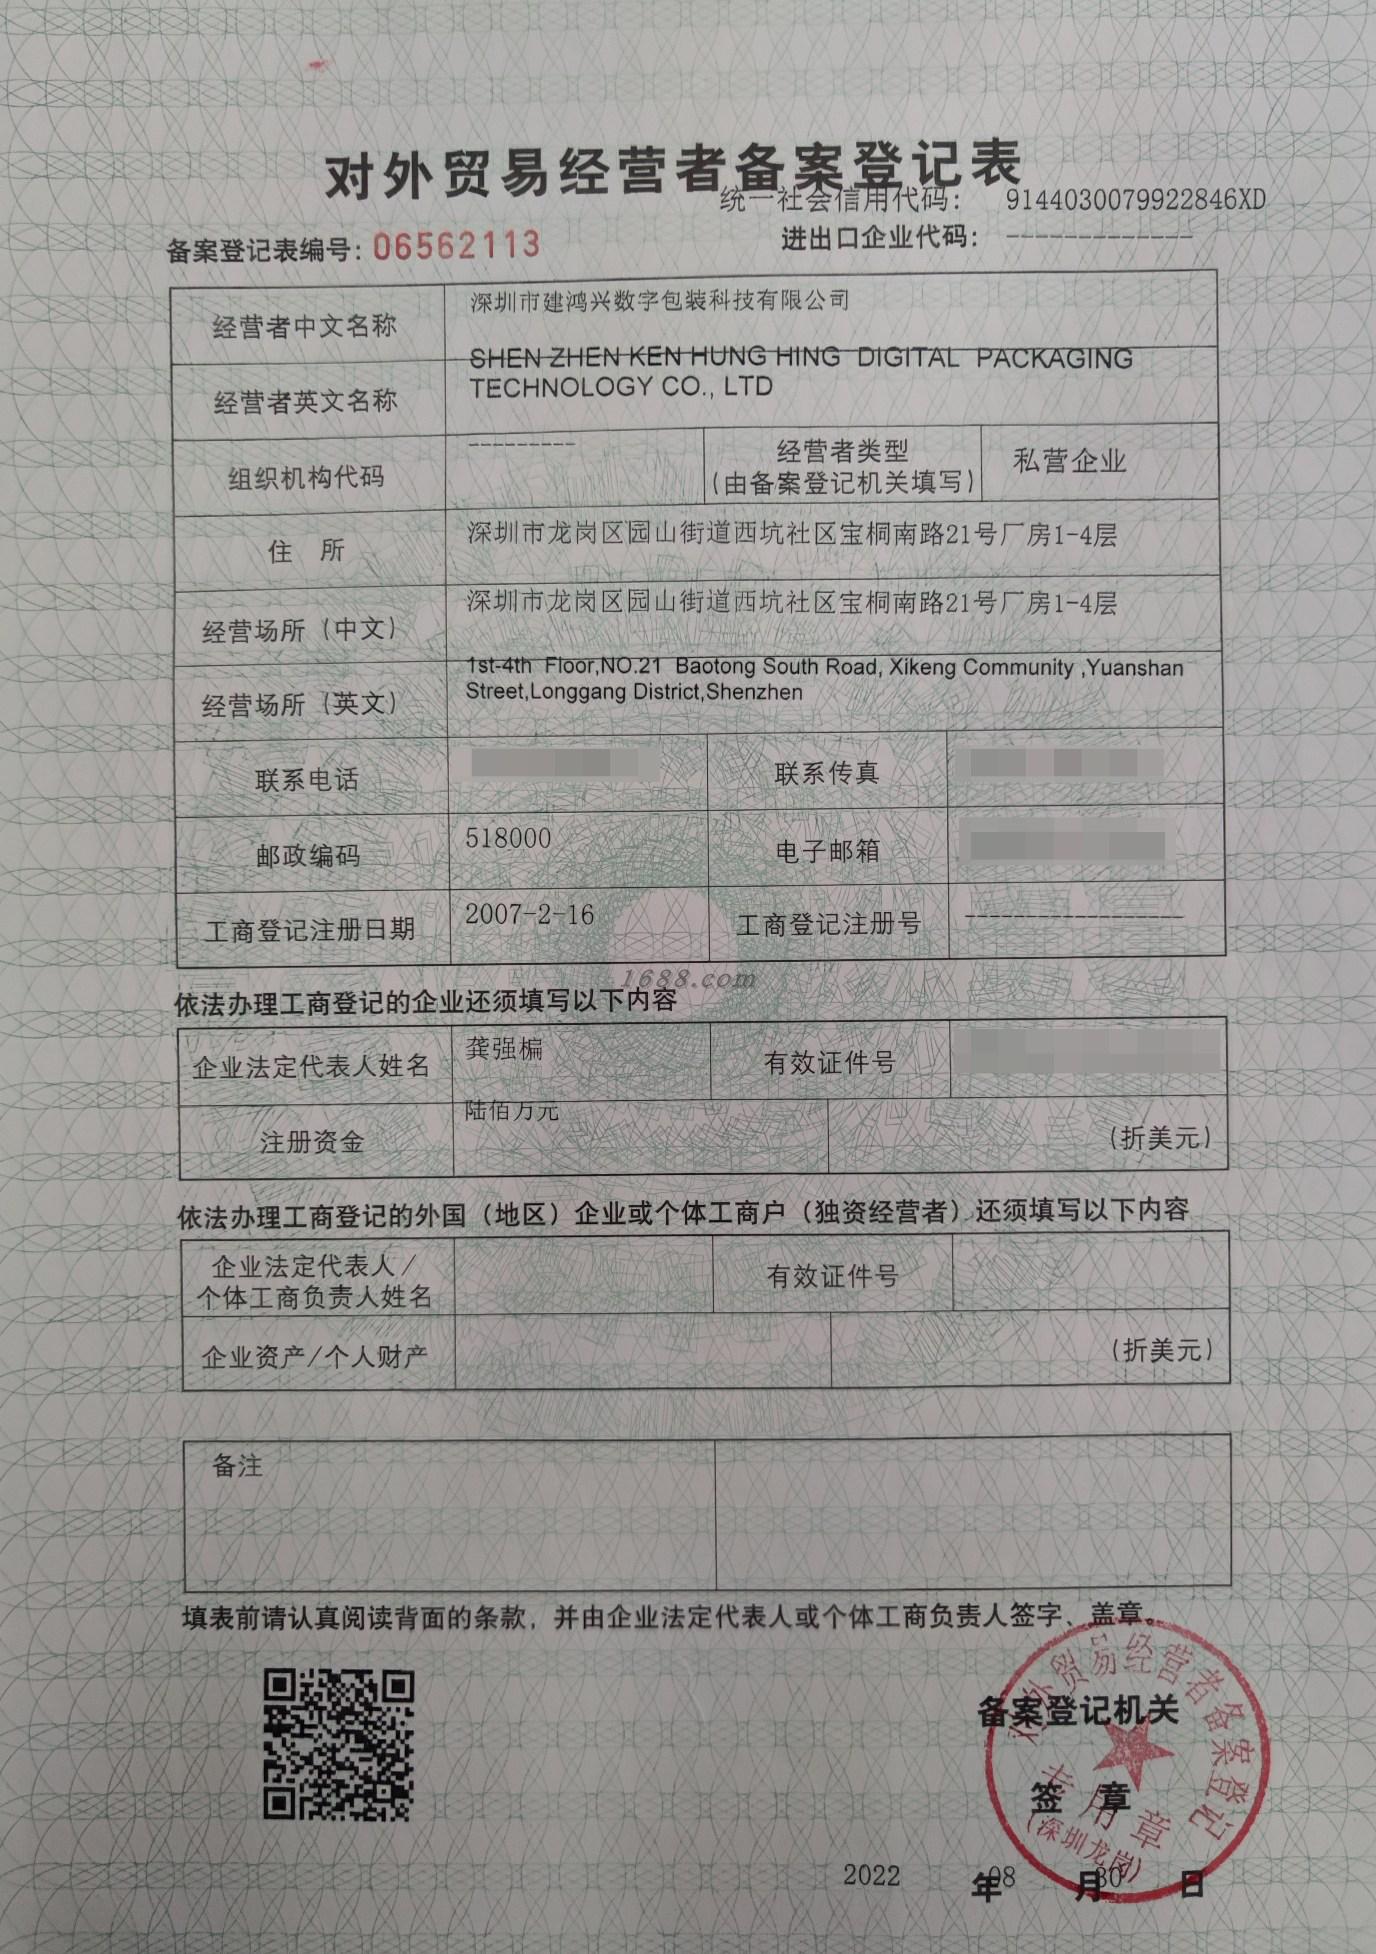 对外贸易经营者备案登记表
统一社会信用代码： 9144030079922846XD
备案登记表编号：06562113
进出口企业代码： -------------
经营者中文名称 深圳市建鸿兴数字包装科技有限公司
经营者英文名称 SHEN ZHEN KEN HUNG HING DIGITAL PACKAGING
TECHNOLOGY CO., LTD
组织机构代码 --------- 经营者类型
(由备案登记机关填写) 私营企业
住 所 深圳市龙岗区园山街道西坑社区宝桐南路21号厂房1-4层
经营场所（中文） 深圳市龙岗区园山街道西坑社区宝桐南路21号厂房1-4层
经营场所（英文） 1st-4th Floor,NO.21 Baotong South Road, Xikeng Community ,Yuanshan
Street,Longgang District,Shenzhen
联系电话 联系传真
邮政编码 518000 电子邮箱
工商登记注册日期 2007-2-16 工商登记注册号 ------------------
1688.com
依法办理工商登记的企业还须填写以下内容
企业法定代表人姓名 龚强 有效证件号
注册资金 陆佰万元 (折美元)
依法办理工商登记的外国（地区）企业或个体工商户（独资经营者）还须填写以下内容
企业法定代表人/
个体工商负责人姓名 有效证件号
企业资产/个人财产 (折美元)
备注
填表前请认真阅读背面的条款，并由企业法定代表人或个体工商负责人签字、盖章。
对外贸易经营者备案登记
备案登记机关
签 章
专用章
(深圳龙岗)
2022 年 08 月 30 日